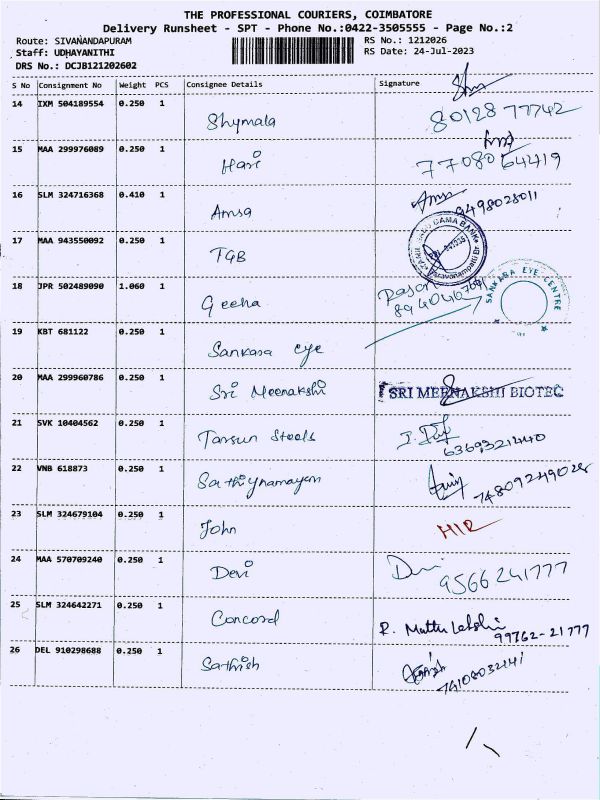 THE PROFESSIONAL COURIERS, COIMBATORE
Delivery Runsheet - SPT - Phone No.:0422-3505555 - Page No.:2
Route: SIVANANDAPURAM RS No.: 1212026
Staff: UDHAYANITHI RS Date: 24-Jul-2023
DRS No.: DCJB121202602
S No Consignment No Weight PCS Consignee Details Signature
14 IXM 504189554 0.250 1 Shymala 80128 77742
15 MAA 299976089 0.250 1 Hari 7708064419
16 SLM 324716368 0.410 1 Amsa 9498028011
17 MAA 943550092 0.250 1 TGB
18 JPR 502489090 1.060 1 Geetha
SANKARA EYE CENTRE
19 KBT 681122 0.250 1 Sankara eye
20 MAA 299960786 0.250 1 Sri Meenakshi SRI MEENAKSHI BIOTEC
21 SVK 10404562 0.250 1 Tarsun Steels 6369321440
22 VNB 618873 0.250 1 Sathiynarayan 74809249028
23 SLM 324679104 0.250 1 John HIR
24 MAA 570709240 0.250 1 Devi Devi 9566241777
25 SLM 324642271 0.250 1 Concord R. Muthu Lakshi 99762-21777
26 DEL 910298688 0.250 1 Sathish